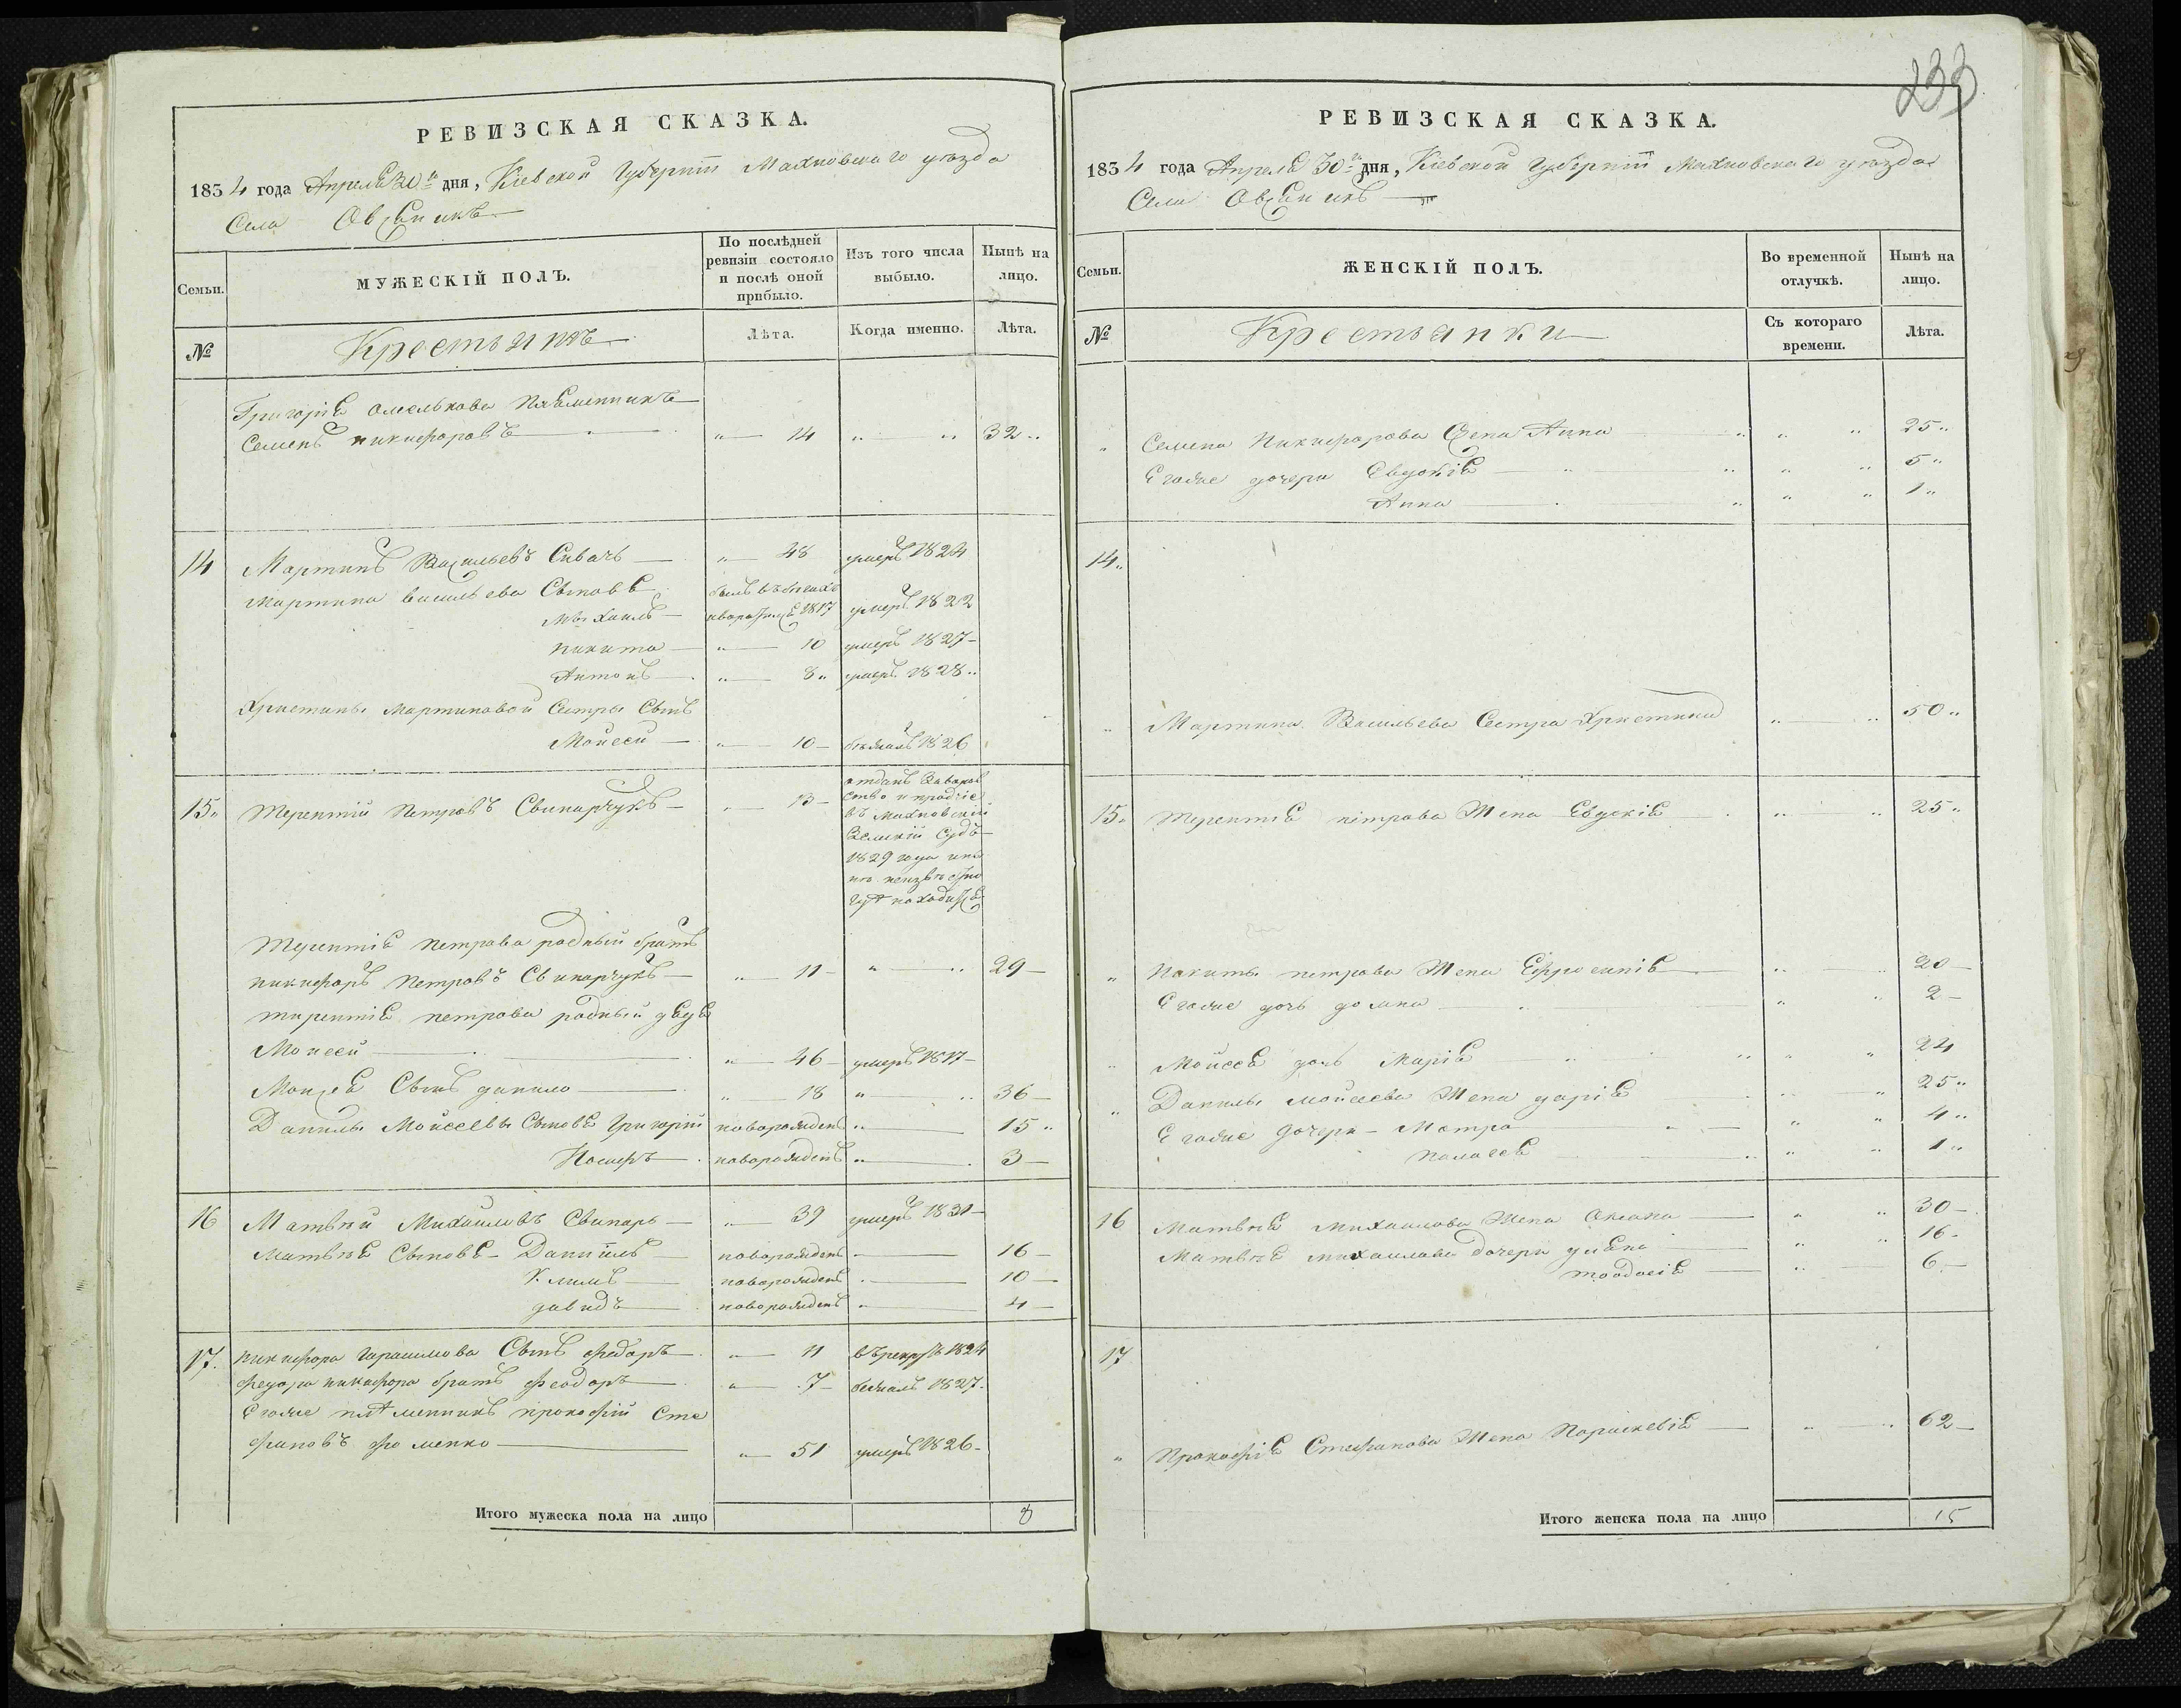 РЕВИЗСКАЯ СКАЗКА.
1834 года Апреля 30го дня, Кіевской Губерніи Махновскаго уѣзда
Села Овсяникъ
Семьи.
МУЖЕСКІЙ ПОЛЪ.
По послѣдней ревизіи состояло и послѣ оной прибыло.
Изъ того числа выбыло.
Нынѣ на лицо.
№
Крестьянъ
Лѣта.
Когда именно.
Лѣта.
Григорія Омелькова Племянникъ
Семенъ никифоровъ " 14 " " 32 "
14 Мартинъ Васильевъ Сивачъ " 48 умеръ 1824
Мартина васильева Сыновья
Михаилъ 1817 умеръ 1822
никита " 10 умеръ 1827
Антонъ " 8 " умеръ 1828 "
Христины Мартиновой Сестры Сынъ
Мойсей " 10 бѣжалъ 1826
15 " Терентій Петровъ Свинарчукъ " 13
отданъ
въ Махновскій
Земскій Судъ
1829 года
неизвѣстно
гдѣ находится
Терентія петрова родный братъ
никифоръ Петровъ Свинарчукъ " 11 " " 29
терентія петрова родный дядя
Моисей " 46 умеръ 1817
Моисея Сынъ данило " 18 " " 36
Данилы Мойсеевы Сыновья Григорій новорожденъ " 15 "
Іосифъ новорожденъ " 3
16 Матвѣй Михаиловъ Свинарь " 39 умеръ 1831
Матвѣя Сыновья Даниилъ новорожденъ 16
Климъ новорожденъ 10
давидъ новорожденъ " 4
17. никифора гарасимова Сынъ федоръ " 11 въ рекруты 1824
федора никифора братъ феодоръ " 7 бежалъ 1827.
Егоже племянникъ прокофій Сте
фановъ фоменко " 51 умеръ 1826
Итого мужеска пола на лицо 8
233
РЕВИЗСКАЯ СКАЗКА.
1834 года Апреля 30го дня, Кіевской Губерніи Махновскаго уѣзда
Села Овсяникъ
Семьи.
ЖЕНСКІЙ ПОЛЪ.
Во временной отлучкѣ.
Нынѣ на лицо.
№
Крестьянки
Съ котораго времени.
Лѣта.
" Семена Никифорова Жена Анна " " 25 "
Егоже дочери Евдокія " " 5 "
Анна " " 1 "
14 "
" Мартина Васильева Сестра Христина " " 50 "
15 " Терентія петрова Жена Евдокія " " 25 "
" Никиты петрова Жена Ефросинія " " 20
Егоже дочь домна " " 2
" Мойсея дочь Марія " " 24
" Данилы мойсеева Жена дарія " " 25 "
Егоже Дочери Мотра " " 4 "
палагея " " 1 "
16 Матвѣя михаилова Жена Оксана " " 30
Матвѣя михаилова Дочери уліяна " " 16
теодосія " 6
17
" Прокофія Стефанова Жена Параскевія " " 62
Итого женска пола на лицо 15